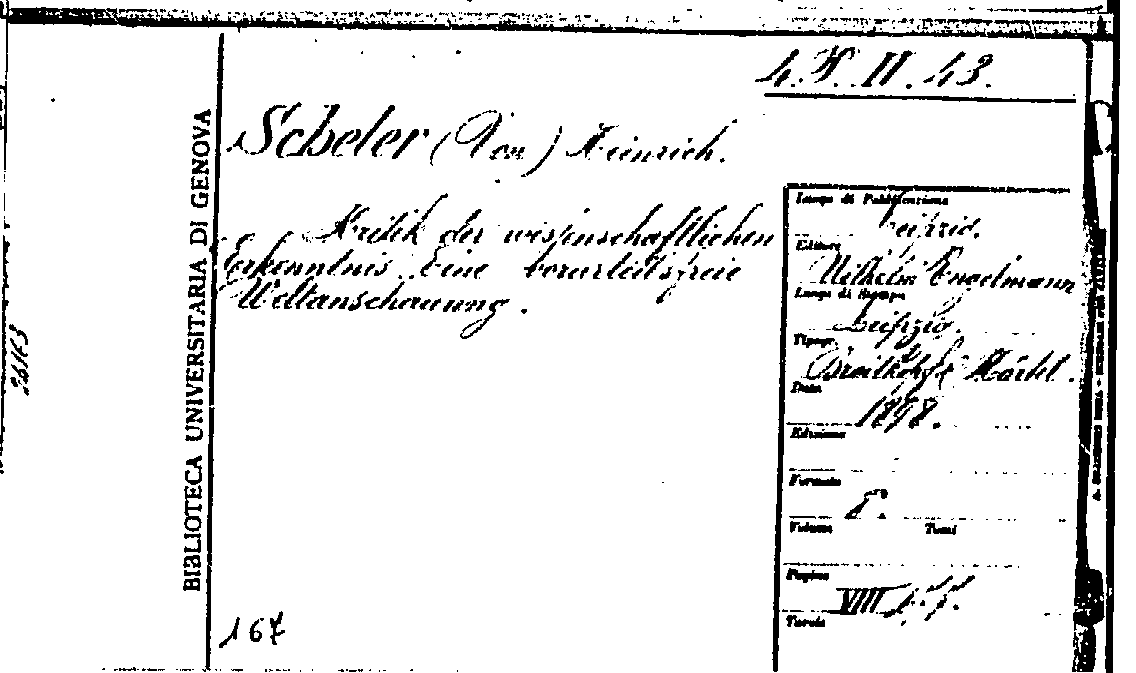 4. II. 43.
BIBLIOTECA UNIVERSITARIA DI GENOVA
Scheler (Von) Heinrich.
Kritik der wissenschaftlichen
Erkenntnis. Eine vorurteilsfreie
Weltanschauung.
Luogo di Pubblicazione
Leipzig.
Editore
Wilhelm Engelmann
Luogo di Stampa
Leipzig.
Tipogr.
Breitkopf & Härtel.
Data
1898.
Edizione
Formato
8°.
Volume Tomi
Pagine
VIII
Tavole
167